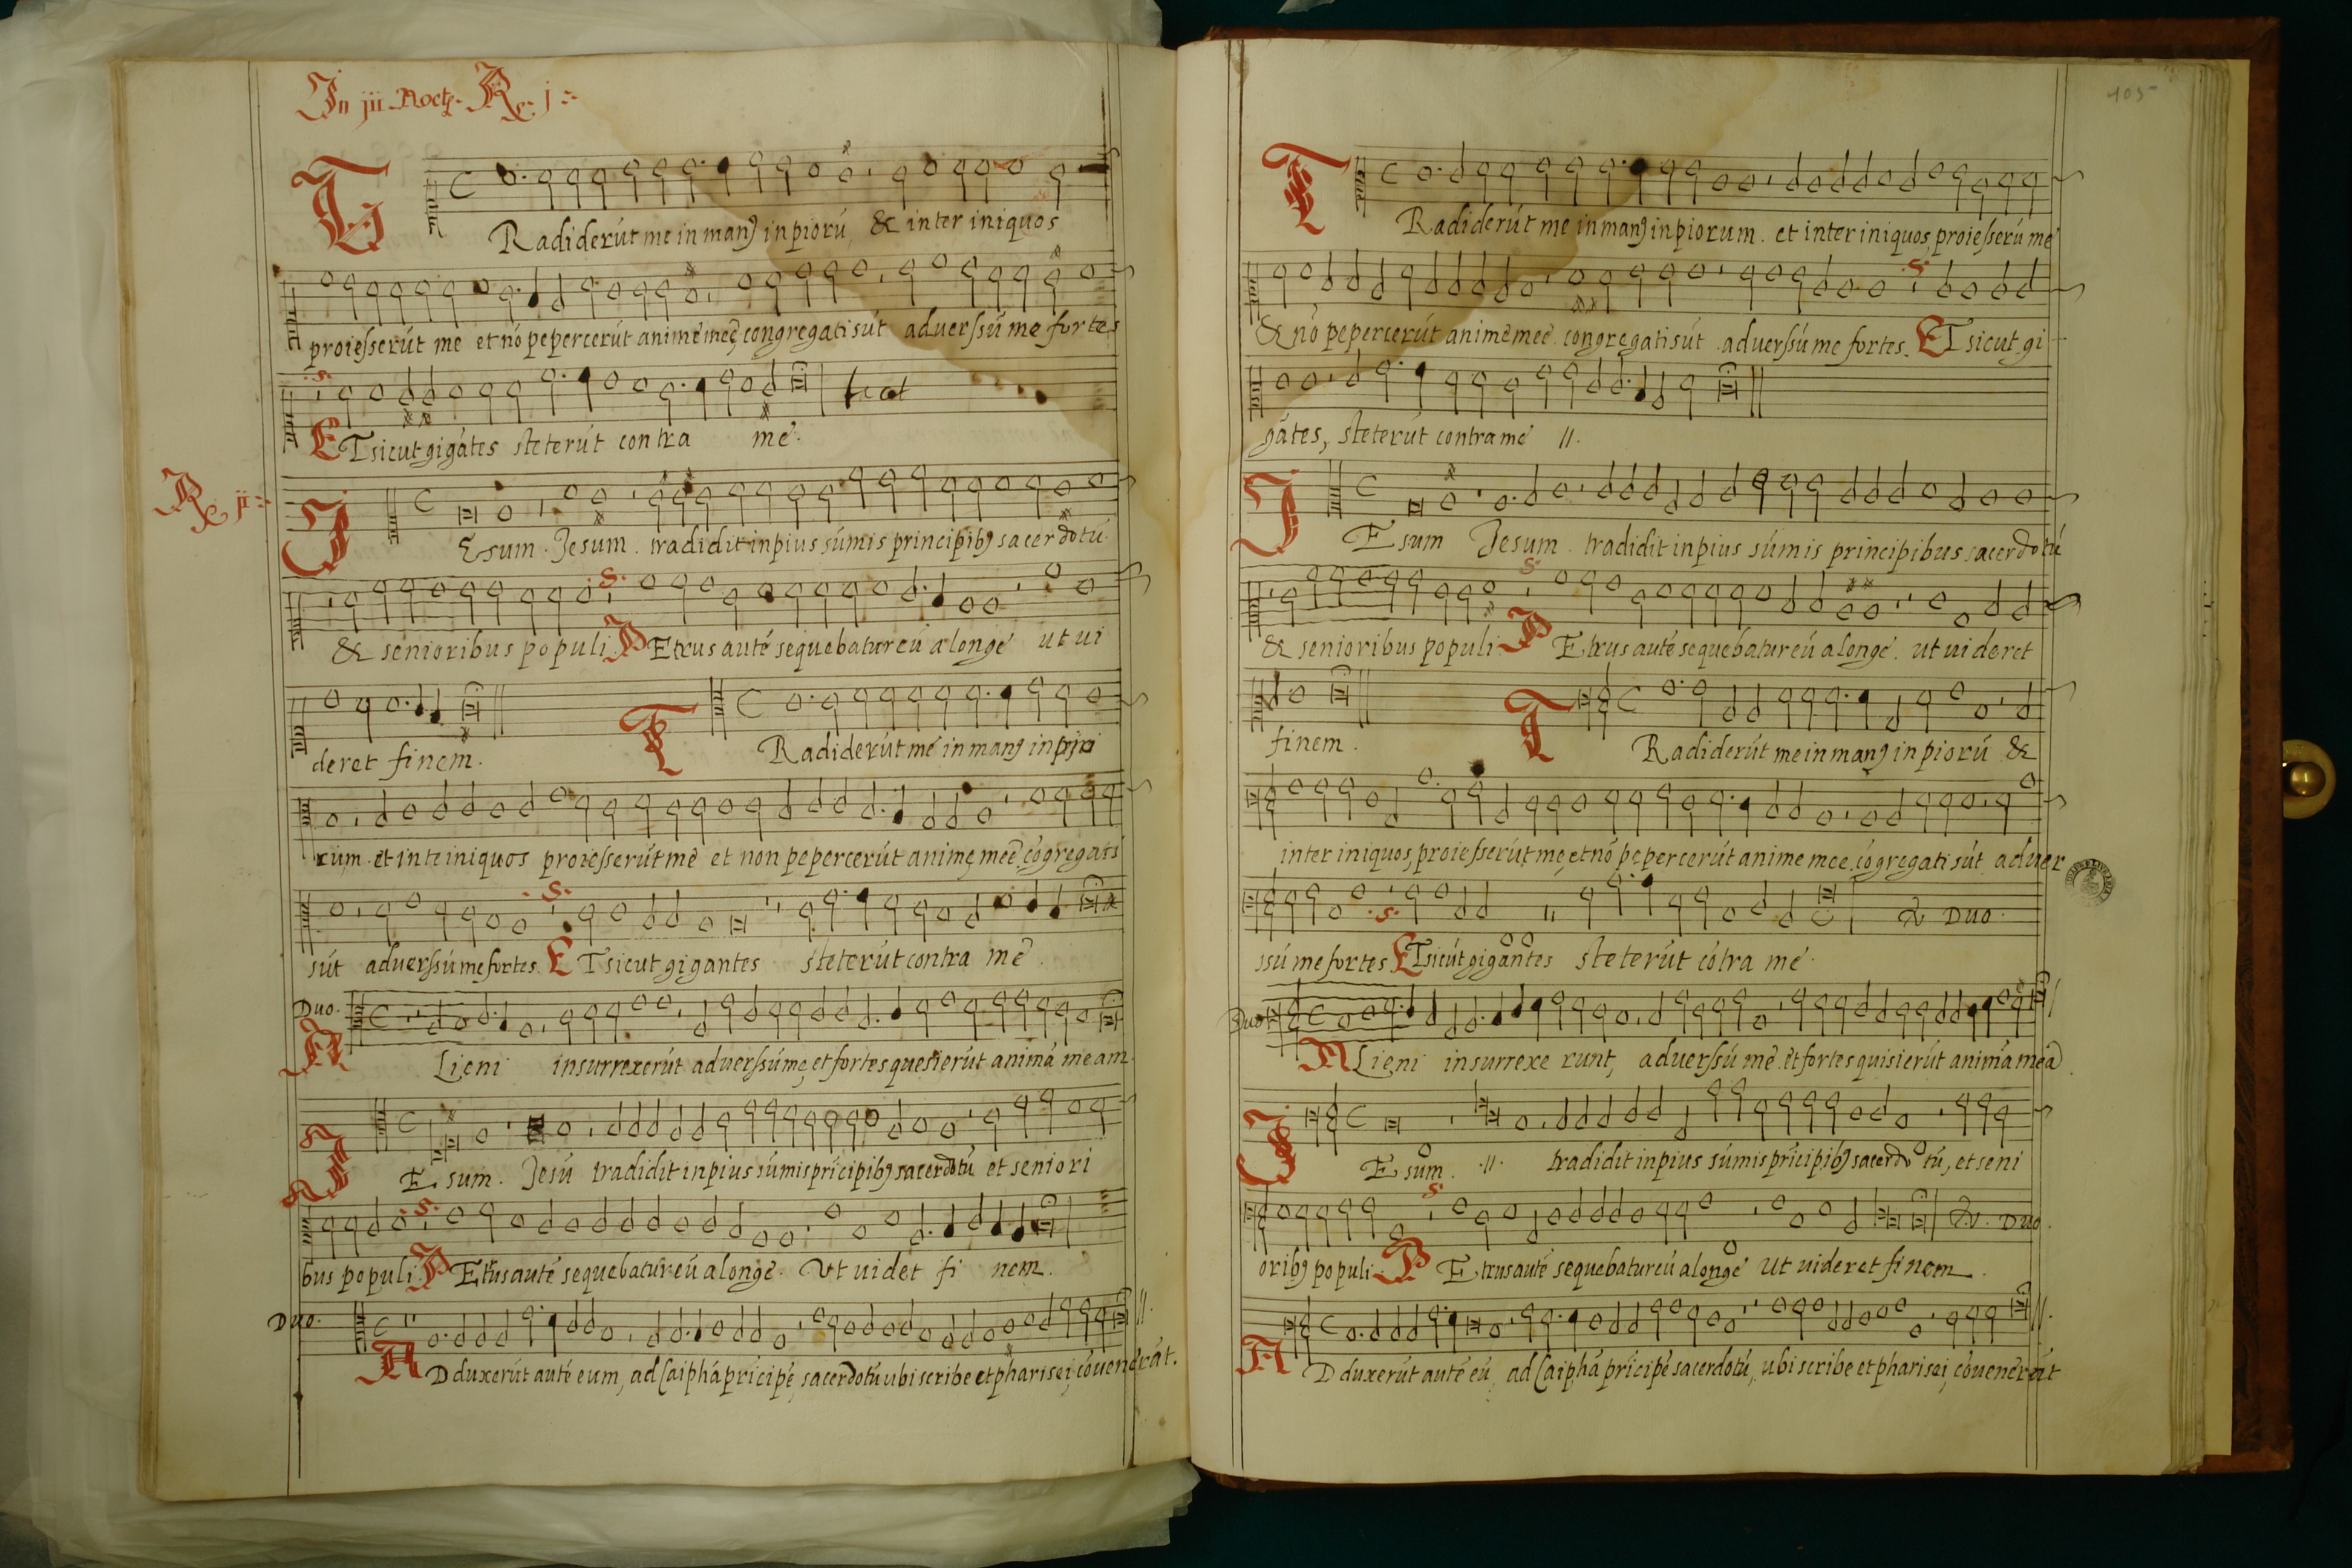 In iii Noct. R. j
TRadiderūt me in manꝰ inpiorū & inter iniquos
proiesserūt me et nō pepercerūt animemeē, congregati sūt aduerssū me fortes
.S.
ETsicut gigātes steterūt contra mē.
R. ij
IEsum. Jesum. tradidit inpius sūmis principibꝰ sacerdotū
& senioribus populi .S. PEtrus autē sequebatur eū a longe ut ui
deret finem.
TRadiderūt mē in manꝰ inpio
rum. et inte iniquos proiesserūt mē et non pepercerūt anime meē, cōgregati
sūt aduerssū me fortes. .S. ETsicut gigantes steterūt contra mē.
Duo.
ALieni insurrexerūt aduerssū me, et fortes quesierūt animā meam.
IEsum. Jesū tradidit inpius sūmis prīcipibꝰ sacerdotū et seniori
bus populi .S. PEtrus autē sequebatur eū a longe. Vt uidet finem.
Duo.
ADduxerūt autē eum, ad Caiphā prīcipē, sacerdotū ubi scribe et pharisei, cōuenerāt.
105
TRadiderūt me in manꝰ inpiorum. et inter iniquos, proiesserū me
& nō pepercerūt animemeē. congregati sūt. aduerssū me fortes. .S. ETsicut gi
gātes, steterūt contra mē //.
IEsum Jesum. tradidit inpius sūmis principibus sacerdotū
& senioribus populi. S. PEtrus autē sequebatur eū a longe. ut uideret
finem.
TRadiderūt me in manꝰ inpiorū &
inter iniquos, proiesserūt me, et nō pepercerūt anime mee. cōgregati sūt aduer
Duo.
ssū me fortes .S. ETsicūt gigantes steterūt cōtra mē.
Duo
ALieni insurrexe runt, aduerssū mē. et fortes quisierūt animā meā.
IEsum. .//. tradidit inpius sūmis prīcipibꝰ sacerdotū, et seni
Duo.
oribꝰ populi. S. PEtrus autē sequebatur eū a longe ut uideret finem.
ADduxerūt autē eū, ad Caiphā prīcipē sacerdotū, ubi scribe et pharisei, cōuenerāt